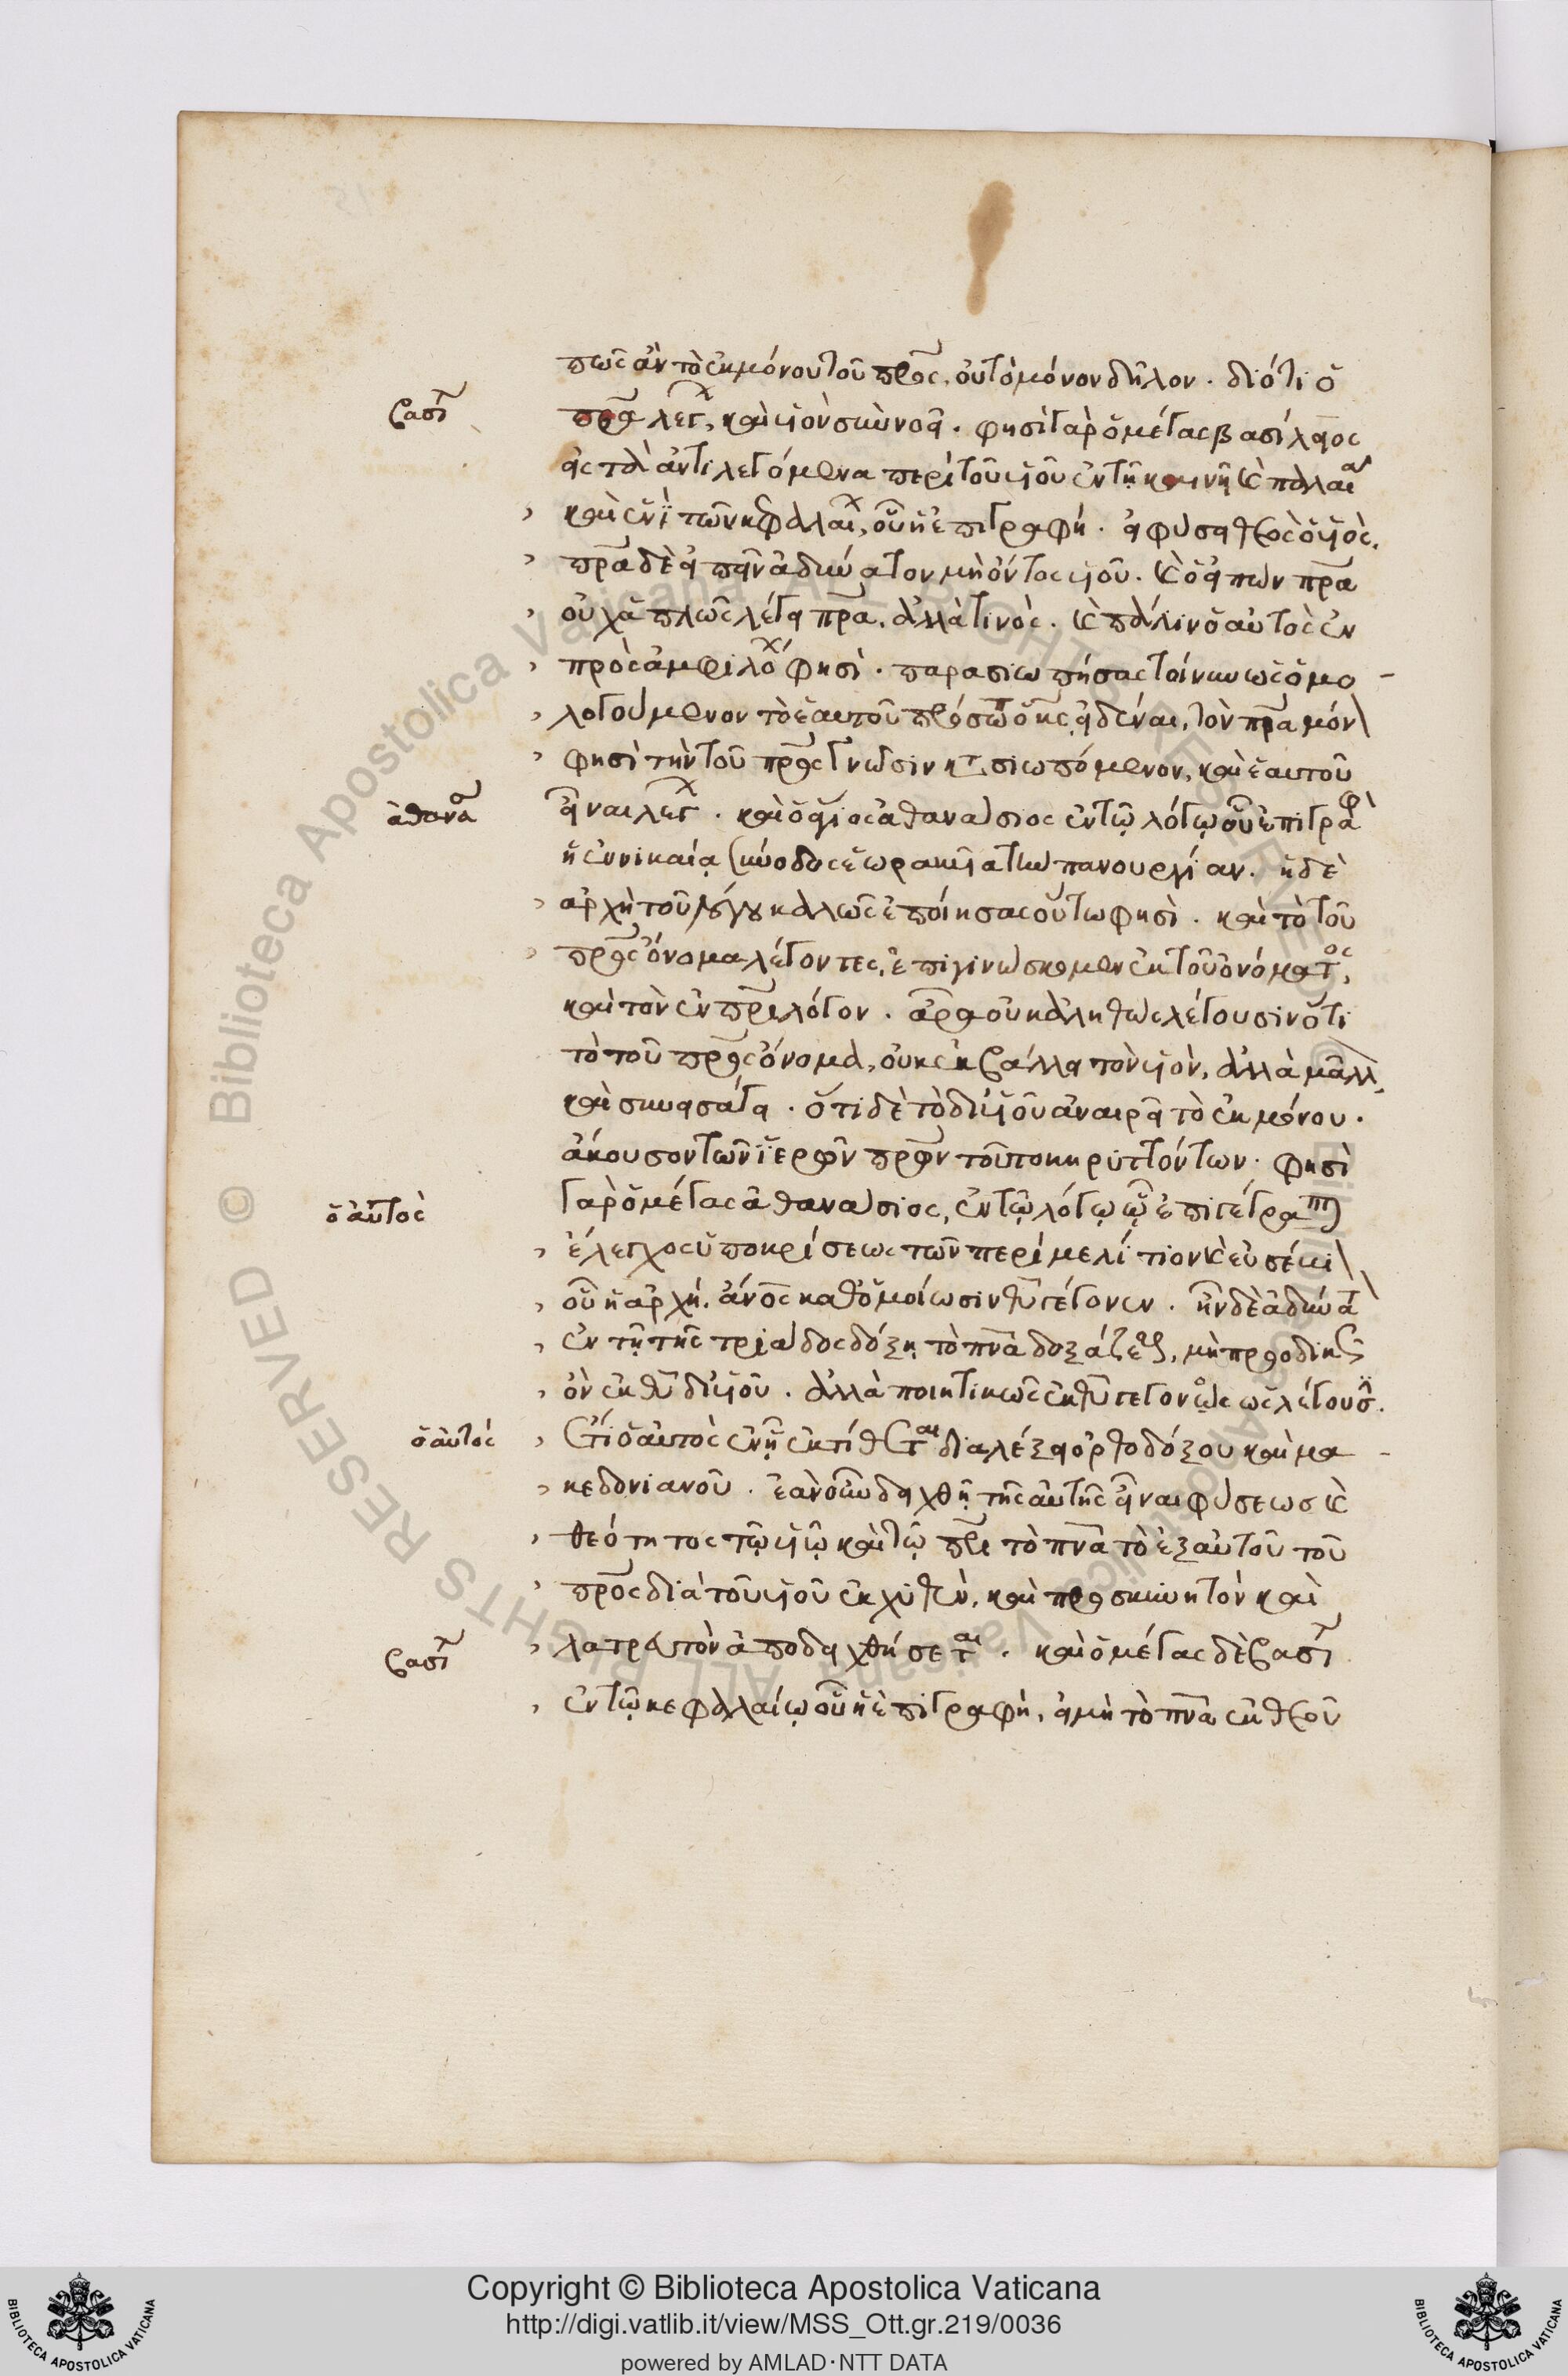 πῶς ἂν τὸ ἐκ μόνου τοῦ πρς, οὐ τὸ μόνον δῆλον. διότι ὁ
βασι
πρα λεγ, καὶ υἱὸν συννοεῖ. φησὶ γὰρ ὁ μέγας βασίλειος
εἰς τὰ ἀντιλεγόμενα περὶ τοῦ υἱοῦ ἐν τῇ καινῇ καὶ παλαι
καὶ τῶν κεφαλαι, οὗ ἡ ἐπιγραφή. εἰ φύσει θεὸς ὁ υἱὸς.
πρα δὲ εἰπεῖν ἀδύνατον μὴ ὄντος υἱοῦ. καὶ ὁ εἰπὼν πρα
οὐχ ἁπλῶς λέγει πρα, ἀλλὰ τινὸς. καὶ πάλιν ὁ αὐτὸς ἐν
πρὸς ἀμφιλο φησὶ. παρασιωπήσας τοίνυν ὡς ὁμο-
λογούμενον τὸ ἑαυτοῦ πρόσωπ ὁ κς εἰδέναι, τὸν πρα μόν
φησὶ τὴν τοῦ πρς γνῶσιν κτ σιωπόμενον, καὶ ἑαυτοῦ
ἀθανα
εἶναι λεγ. καὶ ὁ ἅγιος ἀθανάσιος ἐν τῷ λόγῳ οὗ ἐπιγρα
ἡ ἐν νικαίᾳ σύνοδος ἑωρακυῖα τὴν πανουργίαν. ἡ δὲ
ἀρχὴ τοῦ λόγου καλῶς ἐποίησας οὕτω φησὶ. καὶ τὸ τοῦ
πρς ὄνομα λέγοντες, ἐπιγινώσκομεν ἐκ τοῦ ὀνόματος,
καὶ τὸν ἐν πρι λόγον. ἄρα οὐκ ἀληθῶς λέγουσιν ὅτι
τὸ τοῦ πρς ὄνομα, οὐκ ἐκβάλλει τὸν υἱὸν, ἀλλὰ μᾶλλ
καὶ συνεισάγει. ὅτι δὲ τὸ δι' υἱοῦ ἀναιρεῖ τὸ ἐκ μόνου.
ἄκουσον τῶν ἱερῶν πρων τοῦτο κηρυττόντων. φησὶ
ὁ αὐτὸς
γὰρ ὁ μέγας ἀθανάσιος, ἐν τῷ λόγῳ ᾧ ἐπιγέγραπτ
ἔλεγχος ὑποκρίσεως τῶν περὶ μελίτιον καὶ εὐσέβι
οὗ ἡ ἀρχή. ἄνος καθ' ὁμοίωσιν θυ γέγονεν. ἦν δὲ ἀδύνατ
ἐν τῇ τῆς τριάδος δόξῃ τὸ πνα δοξάζεσθ, μὴ προοδικ
ὂν ἐκ θυ δι' υἱοῦ. ἀλλὰ ποιητικῶς ἐκ θυ γεγονὼς ὡς λέγουσ.
ὁ αὐτός
ἔτι ὁ αὐτὸς ἐν ᾗ ἐκτίθεται διαλέξει ὀρθοδόξου καὶ μα-
κεδονιανοῦ. ἐὰν οὖν δειχθῇ τῆς αὐτῆς εἶναι φύσεως καὶ
θεότητος τῷ υἱῷ καὶ τῷ πρι τὸ πνα τὸ ἐξ αὐτοῦ τοῦ
προς διὰ τοῦ υἱοῦ ἐκχυθὲν, καὶ προσκυνητὸν καὶ
βασι
λατρευτὸν ἀποδειχθήσεται. καὶ ὁ μέγας δὲ βασι
ἐν τῷ κεφαλαίῳ οὗ ἡ ἐπιγραφή, εἰ μὴ τὸ πνα ἐκ θεοῦ
Copyright © Biblioteca Apostolica Vaticana
http://digi.vatlib.it/view/MSS_Ott.gr.219/0036
powered by AMLAD·NTT DATA